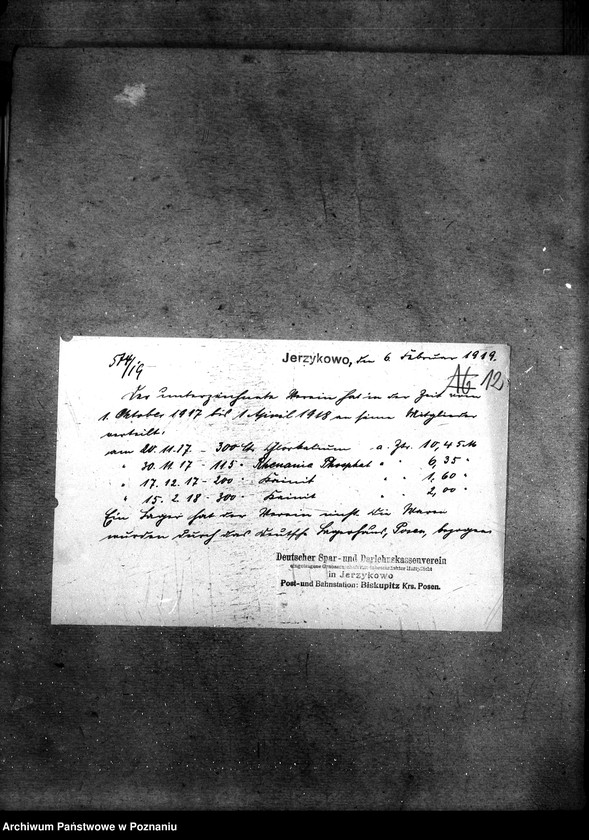 574/19
Jerzykowo, den 6. Februar 1919.
16 12
Der unterzeichnete Verein hat in der Zeit vom
1. Oktober 1917 bis 1. April 1918 an seine Mitglieder
verteilt:
am 20.11.17. – 300 Ctr. a. Ztr. 10,45 M
" 30.11.17 – 115 " Rhenania Phosphat " " 6,35 "
" 17.12.17 – 200 " Kainit " " 1,60 "
" 15.2.18 – 300 " Kainit " " 2,00 "
Ein Lager hat der Verein nicht die Waren
wurden durch das Deutsche Lagerhaus, Posen, bezogen
Deutscher Spar- und Darlehnskassenverein
eingetragene Genossenschaft mit unbeschränkter Haftpflicht
in Jerzykowo
Post- und Bahnstation: Biskupitz Krs. Posen.
Archiwum Państwowe w Poznaniu